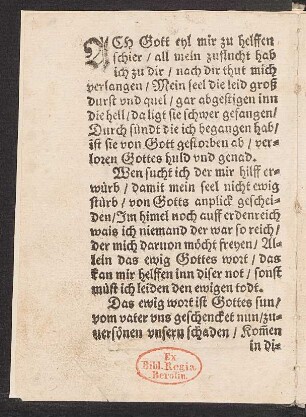 ACh Gott eyl mir zu helffen
schier / all mein zuflucht hab
ich zu dir / nach dir thut mich
verlangen / Mein seel die leid groß
durst vnd quel / gar abgestigen inn
die hell / da ligt sie schwer gefangen /
Durch sündt die ich begangen hab /
ist sie von Gott gestorben ab / ver-
loren Gottes huld vnd genad.
Wen sucht ich der mir hilff er-
würb / damit mein seel nicht ewig
stürb / von Gotts anplick geschei-
den / Im himel noch auff erdenreich
wais ich niemand der war so reich /
der mich daruon möcht freyen / Al-
lein das ewig Gottes wort / das
kan mir helffen inn diser not / sonst
müst ich leiden den ewigen todt.
Das ewig wort ist Gottes sun /
vom vater vns geschencket nun / zu-
uersönen vnsern schaden / Kom̃en
in di-
Ex
Bibl. Regia
Berolin.